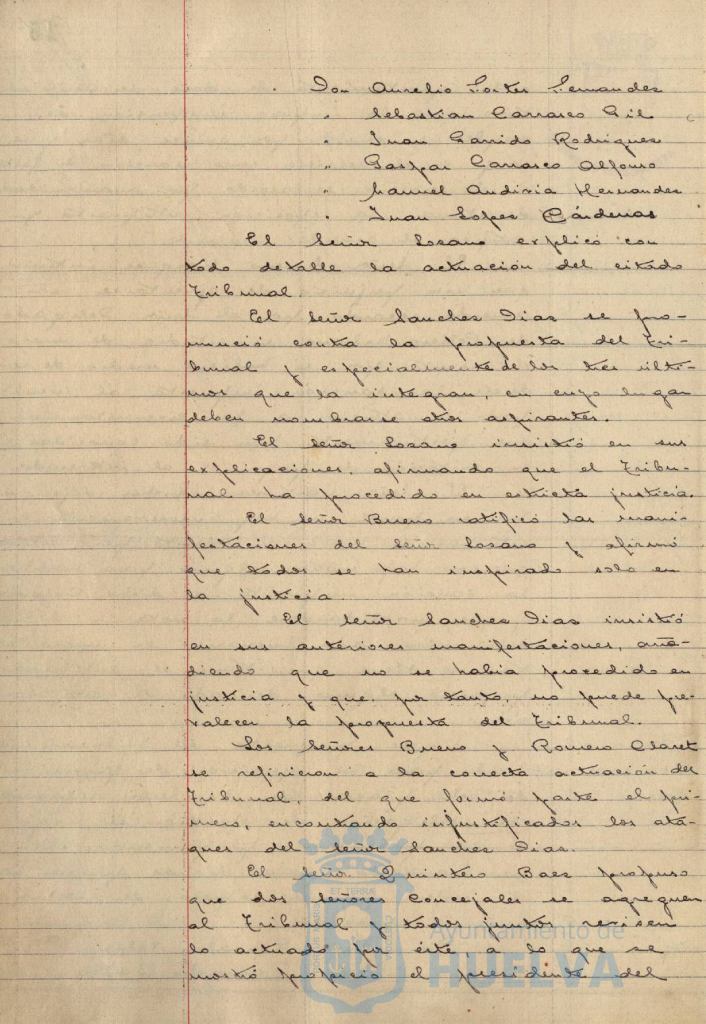 Don Aurelio Fortes Fernandez
" Sebastian Carrasco Gil
" Juan Garrido Rodriguez
" Gaspar Carrasco Alfonso
" Manuel Andivia Hernandez
" Juan Lopez Cárdenas
El Señor Lozano explicó con
todo detalle la actuación del citado
Tribunal.
El Señor Sanchez Dias se pro-
nunció contra la propuesta del Tri-
bunal y especialmente de los tres últi-
mos que la integran, en cuyo lugar
deben nombrarse otros aspirantes.
El Señor Lozano insistió en sus
explicaciones, afirmando que el Tribu-
nal ha procedido en estricta justicia.
El Señor Bueno ratificó las mani-
festaciones del Señor Lozano y afirmó
que todos se han inspirado solo en
la justicia.
El Señor Sanchez Dias insistió
en sus anteriores manifestaciones, aña-
diendo que no se habia procedido en
justicia y que, por tanto, no puede pre-
valecer la propuesta del Tribunal.
Los Señores Bueno y Romero Claret
se refirieron a la correcta actuación del
Tribunal, del que formó parte el pri-
mero, encontrando injustificados los ata-
ques del Señor Sanchez Dias.
El Señor Quintero Baez propuso
que dos Señores Concejales se agreguen
al Tribunal y todos juntos revisen
lo actuado por éste a lo que se
mostró propicio el presidente del
Ayuntamiento de
HUELVA